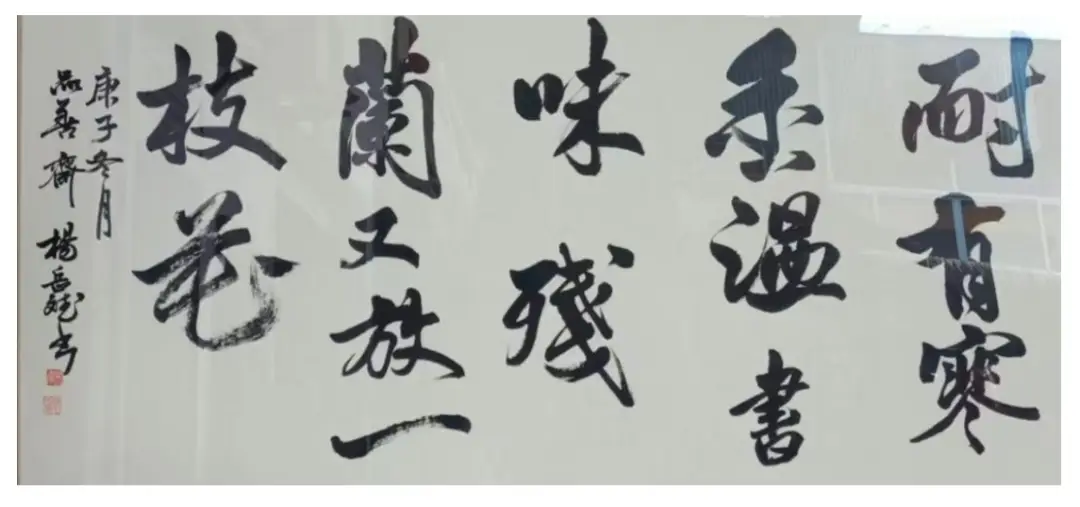 耐有寒
香温書
味残
蘭又放一
枝花
庚子冬月
品善齋 楊岳書